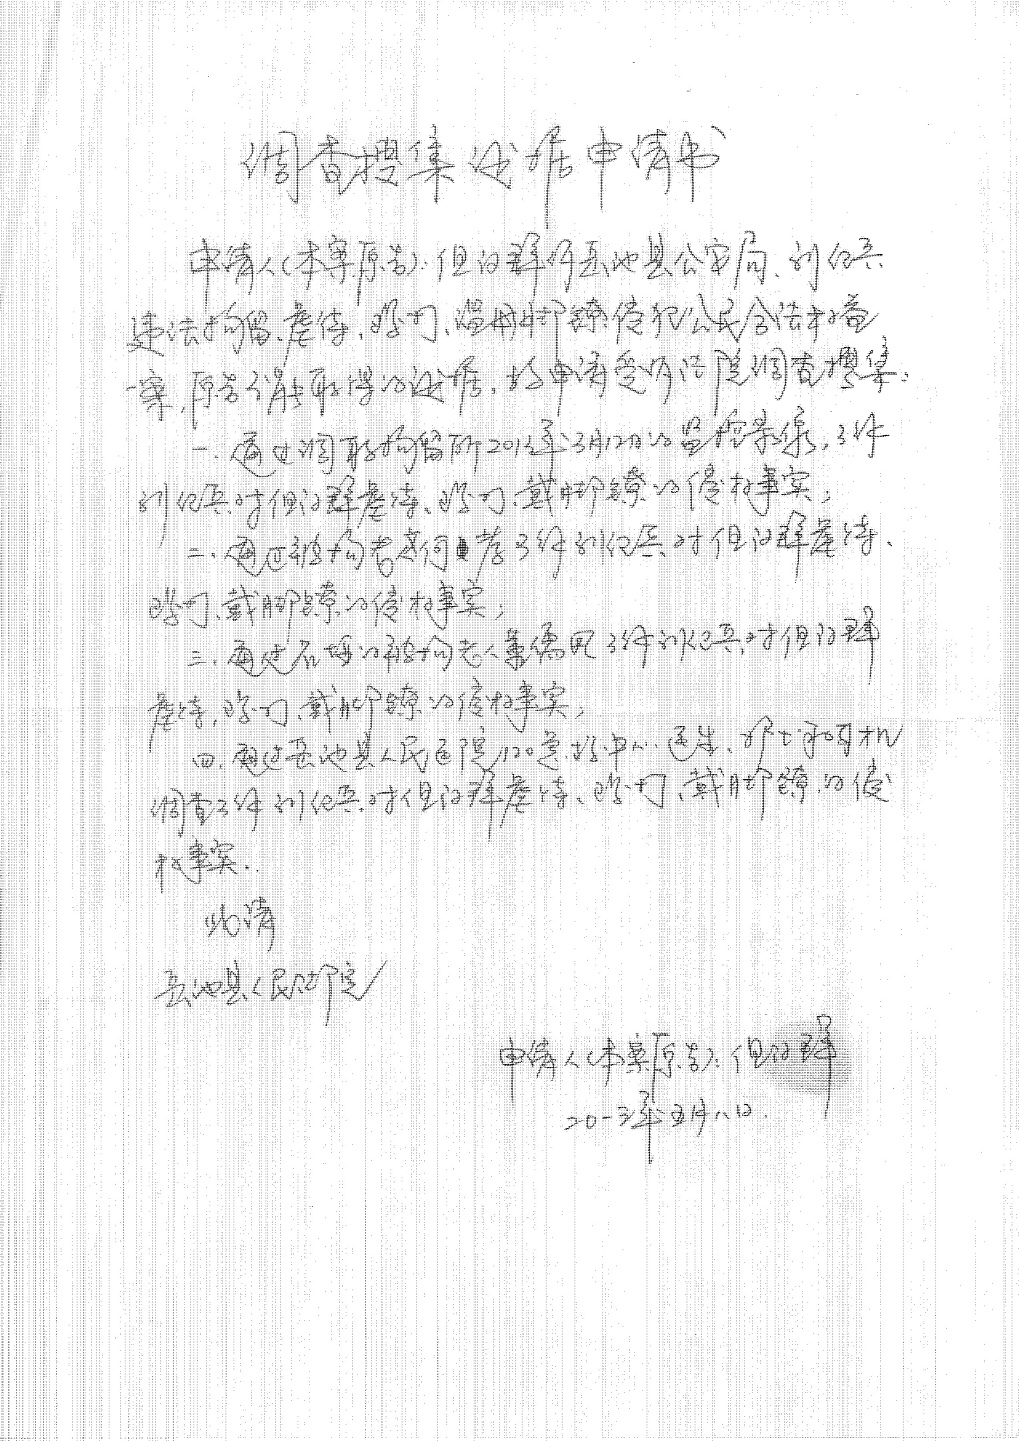 调查搜集证据申请书
申请人(本案原告):但汉群所岳池县公安局、刘纪兵
违法拘留、虐待、殴打、滥用脚镣侵犯公民合法权益
一案,原告不能取得的证据,故申请受诉法院调查搜集:
一.通过调取拘留所2013年3月12日的监控录像,了解
刘纪兵对但汉群虐待、殴打、戴脚镣的侵权事实;
二.通过被拘者 何 荐了解刘纪兵对但汉群虐待、
殴打、戴脚镣的侵权事实;
三.通过石垭的被拘老人 儒 了解刘纪兵对但汉群
虐待,殴打、戴脚镣的侵权事实;
四.通过岳池县人民医院120急救中心医生、护士和司机
调查了解刘纪兵对但汉群虐待、殴打、戴脚镣的侵
权事实.
此请
岳池县人民法院
申请人(本案原告):但汉群
二0一三年五月八日.